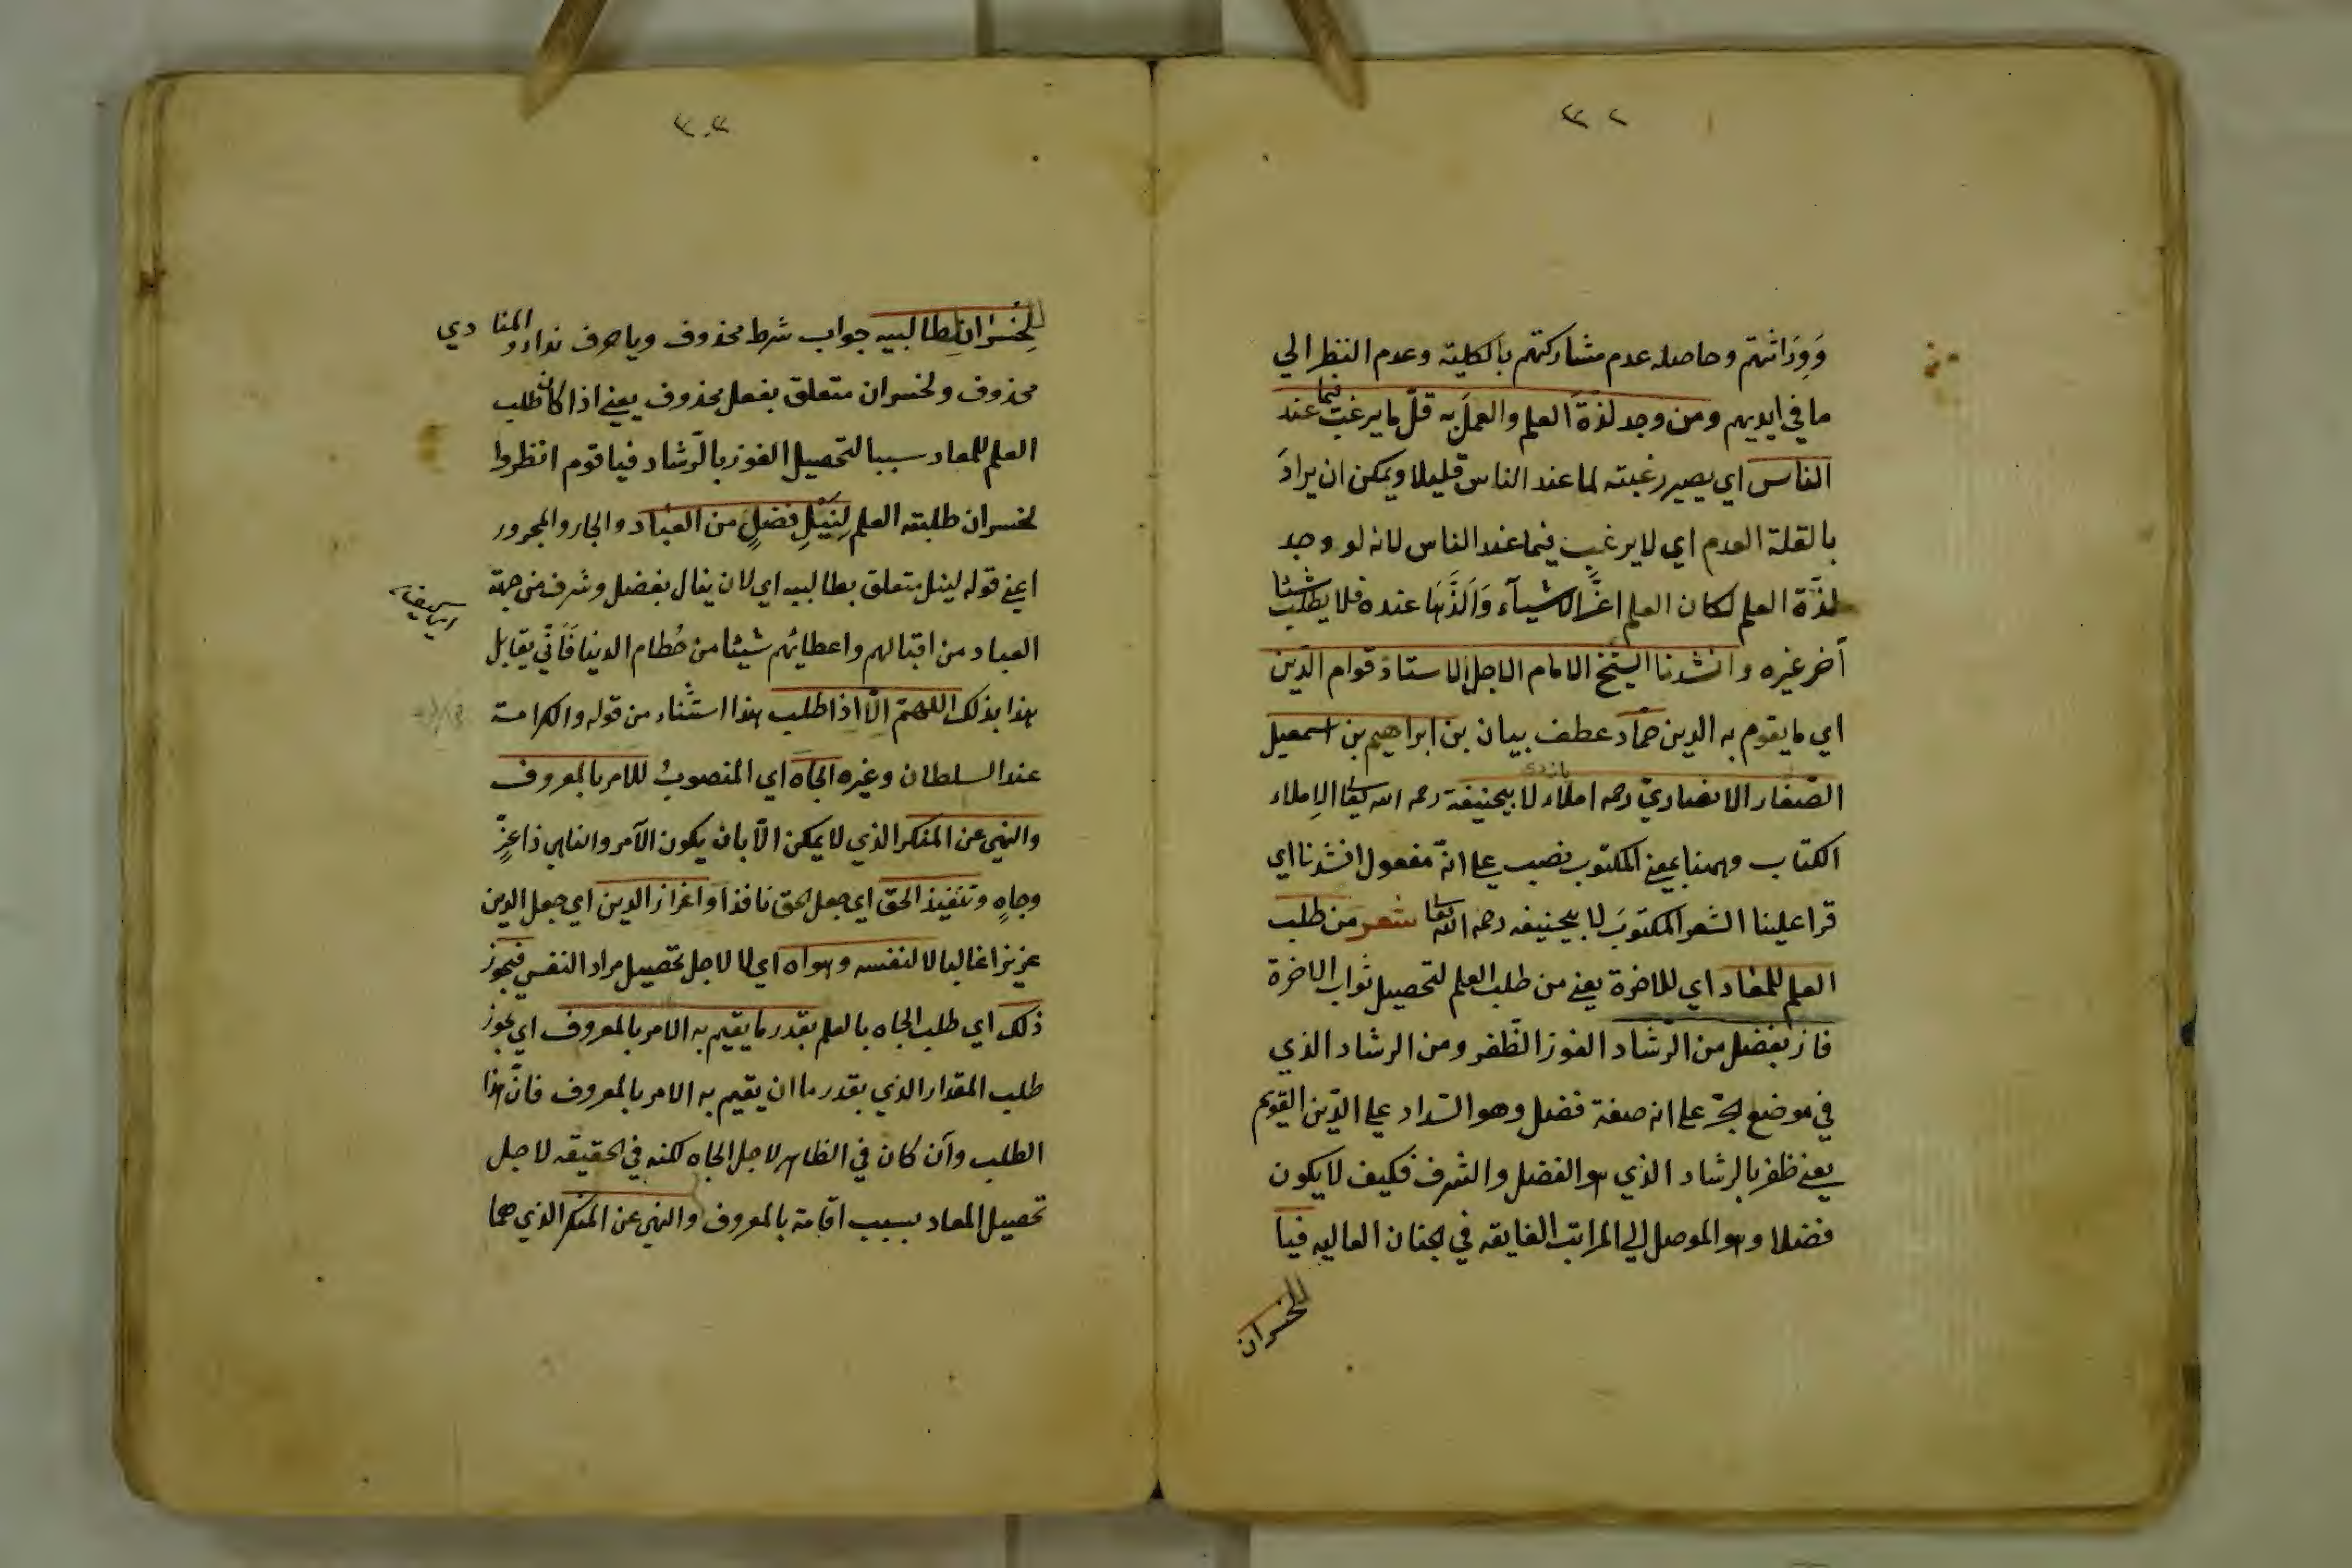 ٣٢
وَوِرَاثتهم وحاصله عدم مشاركتهم بالكلية وعدم النظر الي
ما في ايديهم ومن وجد لذة العلم والعمل به قلّ ما يرغب فيما عند
الناس اي يصير رغبته لما عند الناس قليلا ويمكن ان يرادَ
بالقلة العدم اي لا يرغب فيما عند الناس لانه لو وجد
لذّة العلم لكان العلم اعزّ الاشيآء وَاَلَذَّهَا عنده فلا يطلب شيئا
أخر غيره وانشدنا الشيخ الامام الاجل الاستاذ قوام الدّين
اي ما يقوم به الدين حمّاد عطف بيان بن ابراهيم بن اسمعيل
الصّفار الانصاريّ رحمه املاء لابيحنيفة رحمه الله تعالى الاملاء
الكتاب وههنا بمعنى المكتوب نصب على انّه مفعول انشدنا اي
قرا علينا الشعر المكتوبَ لابيحنيفه رحمه الله تعا شعر من طلب
العلم للمعاد اي للاخرة يعني من طلب العلم لتحصيل ثواب الاخرة
فاز بفضل من الرّشاد الفوز الظّفر ومن الرشاد الذي
في موضع الجرّ على انه صفة فضل وهو السّداد علي الدّين القويم
يعني ظفر بالرشاد الذي هو الفضل والشرف فكيف لا يكون
فضلا وهو الموصل الي المراتب الفايقه في الجنان العاليه فيا
لخسران
٣٣
لِخُسْرَان لِطالبيه جواب شرط محذوف ويا حرف نداء والمنادي
محذوف ولخسران متعلق بفعل محذوف يعني اذا كان طلب
العلم للمعاد سببا لتحصيل الفوز بالرّشاد فيا قوم انظروا
لخسران طلبته العلم لِنَيْلِ فضلٍ من العبَاد والجار والمجرور
اعني قوله لنيل متعلق بطالبيه اي لان ينال بفضل وشرف من جهة
العباد من اقبالهم واعطائهم شيئا من حُطام الدنيا فَاَنّي يقابل
هذا بذلك اللهمّ الّا اذا طلب هذا استثناء من قوله والكرامة
عند السلطان وغيره الجاه اي المنصوبُ للامر بالمعروف
والنهي عن المنكر الذي لا يمكن الّا بان يكون الآمر والناهي ذا عِزٍّ
وجاهٍ وتنفيذ الحق اي جعل الحق نافذا واعزاز الدين اي جعل الدين
عزيزا غالبا لا لنفسه وهواه اي لا لاجل تحصيل مراد النفس فيجوز
ذلك اي طلب الجاه بالعلم بقدر ما يقيم به الامر بالمعروف اي يجوز
طلب المقدار الذي بقدر ما ان يقيم به الامر بالمعروف فانّ هذا
الطلب وان كان في الظاهر لاجل الجاه لكنه في الحقيقه لاجل
تحصيل المعاد بسبب اقامة بالمعروف والنهي عن المنكر الذي هما